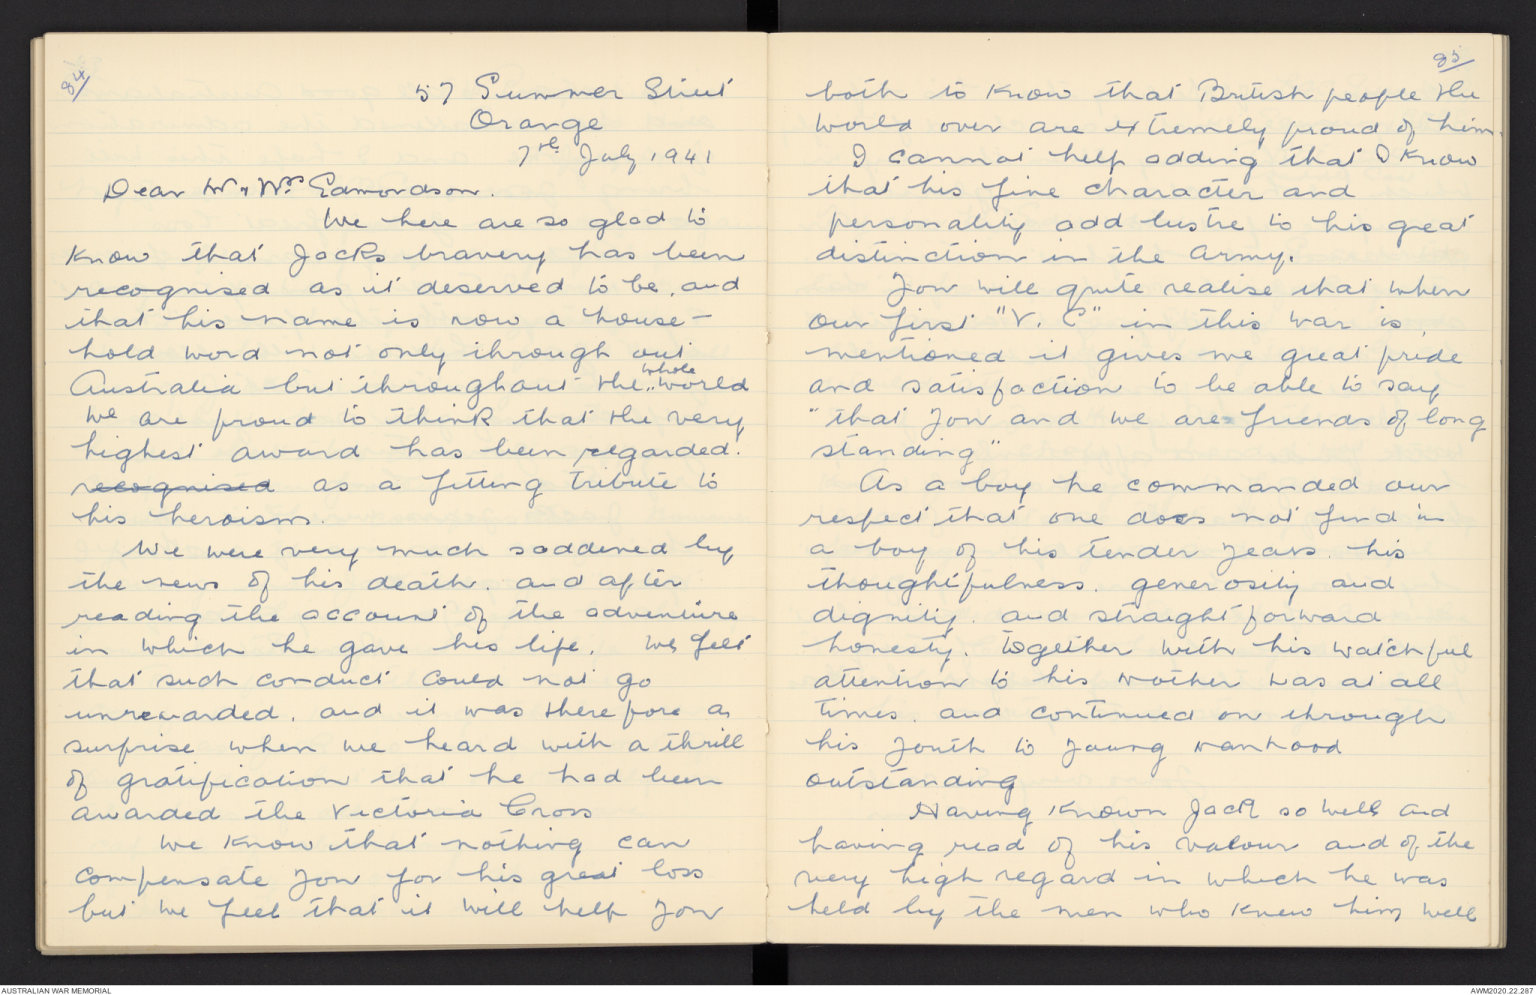 84
57 Summer Street
Orange
7th July 1941
Dear Mr & Mrs Edmondson.
We here are so glad to
know that Jacks bravery has been
recognised as it deserved to be, and
that his name is now a house-
hold word not only through out
Australia but throughout the whole world
We are proud to think that the very
highest award has been regarded.
recognised as a fitting tribute to
his heroism.
We were very much saddened by
the news of his death. and after
reading the account of the adventure
in which he gave his life. We felt
that such conduct could not go
unrewarded. and it was therefore a
surprise when we heard with a thrill
of gratification that he had been
awarded the Victoria Cross
We know that nothing can
compensate you for his great loss
but we feel that it will help you
85
both to know that British people the
world over are extremely proud of him.
I cannot help adding that I know
that his fine character and
personality add lustre to his great
distinction in the Army.
You will quite realise that when
our first "V. C" in this war is
mentioned it gives me great pride
and satisfaction to be able to say
"that you and we are friends of long
standing"
As a boy he commanded our
respect that one does not find in
a boy of his tender years. his
thoughtfulness. generosity and
dignity. and straightforward
honesty. together with his watchful
attention to his mother was at all
times. and continued on through
his youth to young manhood
outstanding
Having known Jack so well and
having read of his valour and of the
very high regard in which he was
held by the men who knew him well
AUSTRALIAN WAR MEMORIAL
AWM2020.22.287